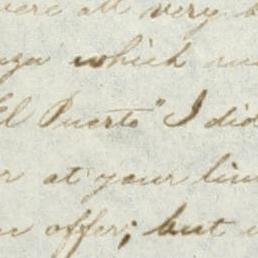 were all very
which
El Puerto" I did
at your
offer; but